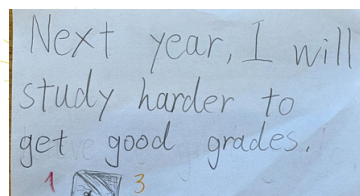 Next year, I will
study harder to
get good grades.
1 3